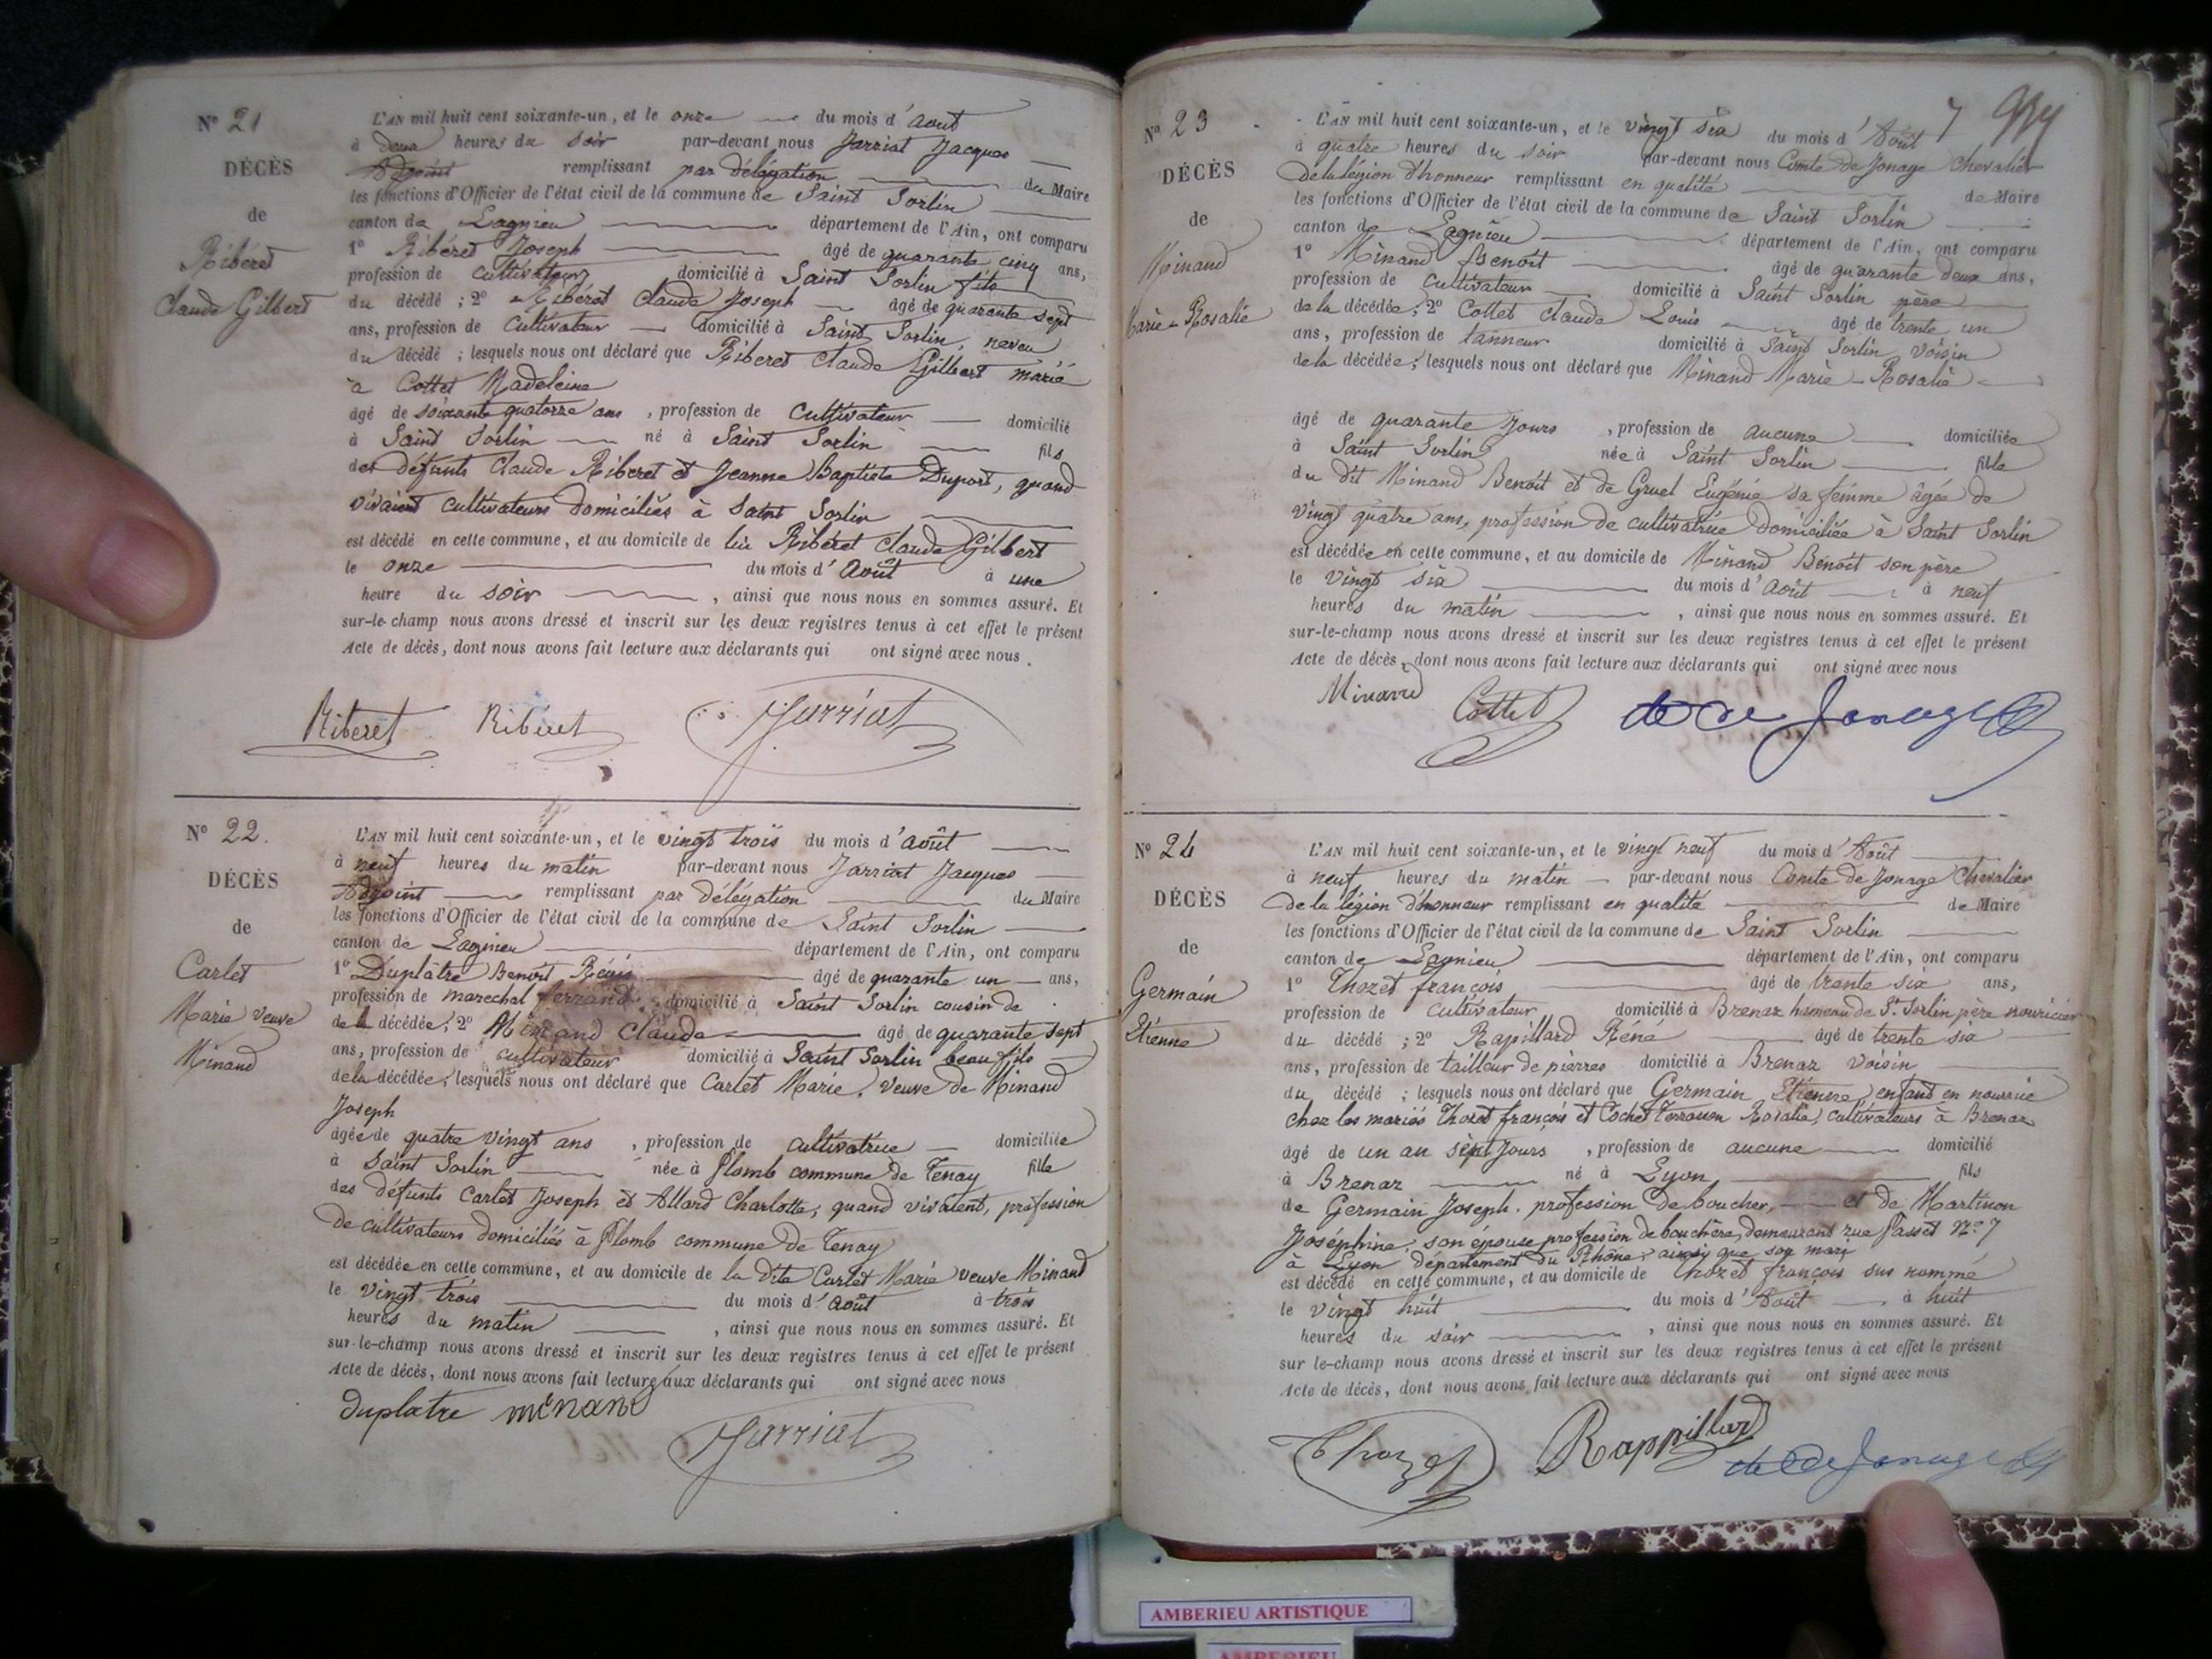 Nº 21
DÉCÈS
de
Ribéret
Claude Gilbert
L'AN mil huit cent soixante-un, et le onze du mois d'Août
à deux heures du soir par-devant nous Jarriat Jacques
Adjoint remplissant par délégation du Maire
les fonctions d'Officier de l'état civil de la commune de Saint Sorlin
canton de Lagnieu département de l'Ain, ont comparu
1º Ribéret Joseph âgé de quarante cinq ans,
profession de cultivateur domicilié à Saint Sorlin fils
du décédé ; 2º Ribéret Claude Joseph âgé de quarante sept
ans, profession de cultivateur domicilié à Saint Sorlin, neveu
du décédé ; lesquels nous ont déclaré que Riberet Claude Gilbert marié
à Cottet Madeleine
âgé de soixante quatorze ans, profession de cultivateur domicilié
à Saint Sorlin né à Saint Sorlin fils
des défunts Claude Riberet et Jeanne Baptiste Duport, quand
vivaient cultivateurs domiciliés à Saint Sorlin
est décédé en cette commune, et au domicile de lui Ribéret Claude Gilbert
le onze du mois d'Août à une
heure du soir, ainsi que nous nous en sommes assuré. Et
sur-le-champ nous avons dressé et inscrit sur les deux registres tenus à cet effet le présent
Acte de décès, dont nous avons fait lecture aux déclarants qui ont signé avec nous.
Riberet Ribéret Jarriat
Nº 22.
DÉCÈS
de
Carlet
Marie veuve
Minand
L'AN mil huit cent soixante-un, et le vingt trois du mois d'Août
à neuf heures du matin par-devant nous Jarriat Jacques
Adjoint remplissant par délégation du Maire
les fonctions d'Officier de l'état civil de la commune de Saint Sorlin
canton de Lagnieu département de l'Ain, ont comparu
1º Duplâtre Benoît Régis âgé de quarante un ans,
profession de marechal ferrand domicilié à Saint Sorlin cousin de
de la décédée ; 2º Minand Claude âgé de quarante sept
ans, profession de cultivateur domicilié à Saint Sorlin beau fils
de la décédée ; lesquels nous ont déclaré que Carlet Marie, veuve de Minand
Joseph
âgée de quatre vingt ans, profession de cultivatrice domiciliée
à Saint Sorlin née à Plomb commune de Tenay fille
des défunts Carlet Joseph et Allard Charlotte, quand vivaient, profession
de cultivateurs domiciliés à Plomb commune de Tenay
est décédée en cette commune, et au domicile de la dite Carlet Marie veuve Minand
le vingt trois du mois d'Août à trois
heures du matin, ainsi que nous nous en sommes assuré. Et
sur-le-champ nous avons dressé et inscrit sur les deux registres tenus à cet effet le présent
Acte de décès, dont nous avons fait lecture aux déclarants qui ont signé avec nous
duplatre minand
Jarriat
Nº 23
DÉCÈS
de
Minand
Marie-Rosalie
L'AN mil huit cent soixante-un, et le vingt six du mois d'Août
à quatre heures du soir par-devant nous Comte de Jonage Chevalier
de la légion d'honneur remplissant en qualité de Maire
les fonctions d'Officier de l'état civil de la commune de Saint Sorlin
canton de Lagnieu département de l'Ain, ont comparu
1º Minand Benoît âgé de quarante deux ans,
profession de cultivateur domicilié à Saint Sorlin père
de la décédée ; 2º Cottet Claude Louis âgé de trente un
ans, profession de tanneur domicilié à Saint Sorlin voisin
de la décédée ; lesquels nous ont déclaré que Minand Marie-Rosalie
âgé de quarante jours, profession de aucune domiciliée
à Saint Sorlin née à Saint Sorlin fille
du dit Minand Benoît et de Gruel Eugénie sa femme âgée de
vingt quatre ans, profession de cultivatrice domiciliée à Saint Sorlin
est décédée en cette commune, et au domicile de Minand Benoît son père
le vingt six du mois d'Août à neuf
heures du matin, ainsi que nous nous en sommes assuré. Et
sur-le-champ nous avons dressé et inscrit sur les deux registres tenus à cet effet le présent
Acte de décès, dont nous avons fait lecture aux déclarants qui ont signé avec nous
Minand Cottet de Jonage
Nº 24
DÉCÈS
de
Germain
Etienne
L'AN mil huit cent soixante-un, et le vingt neuf du mois d'Août
à neuf heures du matin par-devant nous Comte de Jonage Chevalier
de la légion d'honneur remplissant en qualité de Maire
les fonctions d'Officier de l'état civil de la commune de Saint Sorlin
canton de Lagnieu département de l'Ain, ont comparu
1º Thozet françois âgé de trente six ans,
profession de cultivateur domicilié à Brenaz hameau de St Sorlin père nouricier
du décédé ; 2º Rapillard Réné âgé de trente six
ans, profession de tailleur de pierres domicilié à Brenaz voisin
du décédé ; lesquels nous ont déclaré que Germain Etienne, enfant en nourrice
chez les mariés Thozet françois et Cochet Terrasson Rosalie, cultivateurs à Brenaz
âgé de un an sept jours, profession de aucune domicilié
à Brenaz né à Lyon fils
de Germain Joseph, profession de boucher, et de Martinon
Joséphine, son épouse profession de bouchère, demeurant rue Passet Nº 7
à Lyon département du Rhône, ainsi que son mari
est décédé en cette commune, et au domicile de Thozet françois sus nommé
le vingt huit du mois d'Août à huit
heures du soir, ainsi que nous nous en sommes assuré. Et
sur le-champ nous avons dressé et inscrit sur les deux registres tenus à cet effet le présent
Acte de décès, dont nous avons fait lecture aux déclarants qui ont signé avec nous
Thozet Rappillard de Jonage
AMBERIEU ARTISTIQUE
AMBERIEU